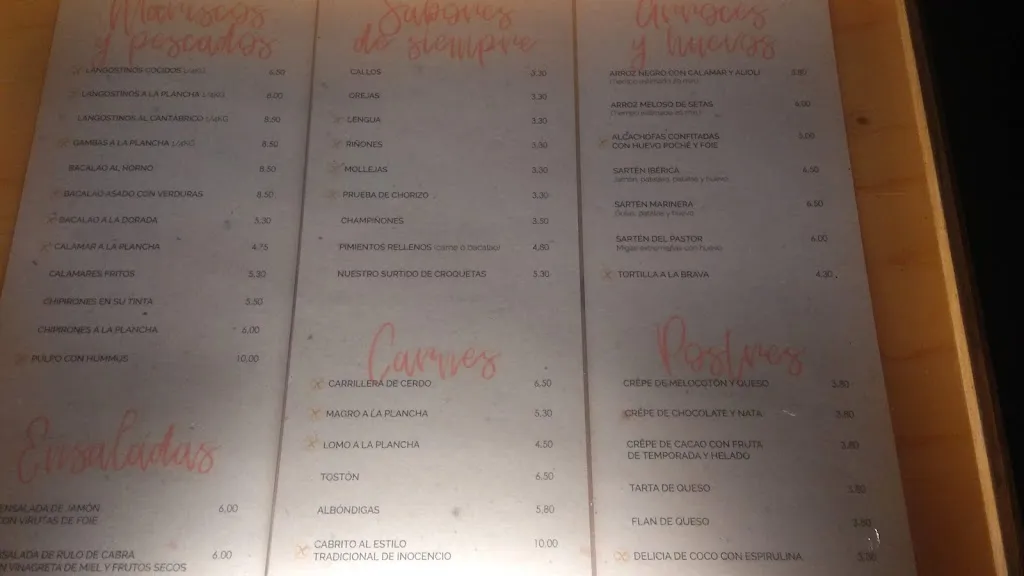 Mariscos
y pescados
LANGOSTINOS COCIDOS 6,50
LANGOSTINOS A LA PLANCHA 6,00
LANGOSTINOS AL CANTÁBRICO 8,50
GAMBAS A LA PLANCHA 8,50
BACALAO AL HORNO 8,50
BACALAO ASADO CON VERDURAS 8,50
BACALAO A LA DORADA 5,30
CALAMAR A LA PLANCHA 4,75
CALAMARES FRITOS 5,30
CHIPIRONES EN SU TINTA 5,50
CHIPIRONES A LA PLANCHA 6,00
PULPO CON HUMMUS 10,00
Ensaladas
ENSALADA DE JAMÓN 6,00
CON VIRUTAS DE FOIE
ENSALADA DE RULO DE CABRA 6,00
CON VINAGRETA DE MIEL Y FRUTOS SECOS
Sabores
de siempre
CALLOS 3,30
OREJAS 3,30
LENGUA 3,30
RIÑONES 3,50
MOLLEJAS 3,30
PRUEBA DE CHORIZO 3,30
CHAMPIÑONES 3,50
PIMIENTOS RELLENOS (carne o bacalao) 4,80
NUESTRO SURTIDO DE CROQUETAS 5,30
Carnes
CARRILLERA DE CERDO 6,50
MAGRO A LA PLANCHA 5,30
LOMO A LA PLANCHA 4,50
TOSTÓN 6,50
ALBÓNDIGAS 5,80
CABRITO AL ESTILO 10,00
TRADICIONAL DE INOCENCIO
Arroces
y huevos
ARROZ NEGRO CON CALAMAR Y ALIOLI
ARROZ MELOSO DE SETAS 6,00
ALCACHOFAS CONFITADAS
CON HUEVO POCHÉ Y FOIE
SARTÉN IBÉRICA 6,50
SARTÉN MARINERA 6,50
SARTÉN DEL PASTOR 6,00
TORTILLA A LA BRAVA 4,30
Postres
CRÊPE DE MELOCOTÓN Y QUESO 3,80
CRÊPE DE CHOCOLATE Y NATA 3,80
CRÊPE DE CACAO CON FRUTA 3,80
DE TEMPORADA Y HELADO
TARTA DE QUESO 3,80
FLAN DE QUESO 3,50
DELICIA DE COCO CON ESPIRULINA